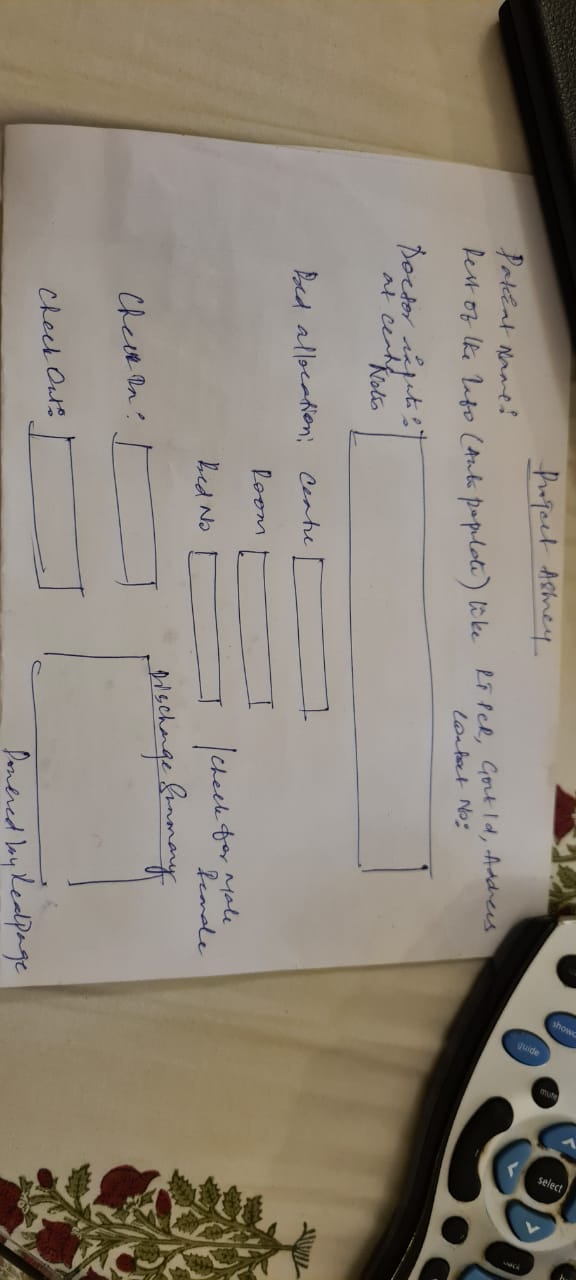 Project Ashrey
Patient Name:
Rest of the Info (Auto populate) like RTPCR, Govt Id, Address
Contact No:
Doctor inputs:
at centre
Notes
Bed allocation: Centre
Room
Bed No
Check for Male
Female
Discharge Summary
Check In:
Check Out:
Powered by RealPage
guide
mute
select